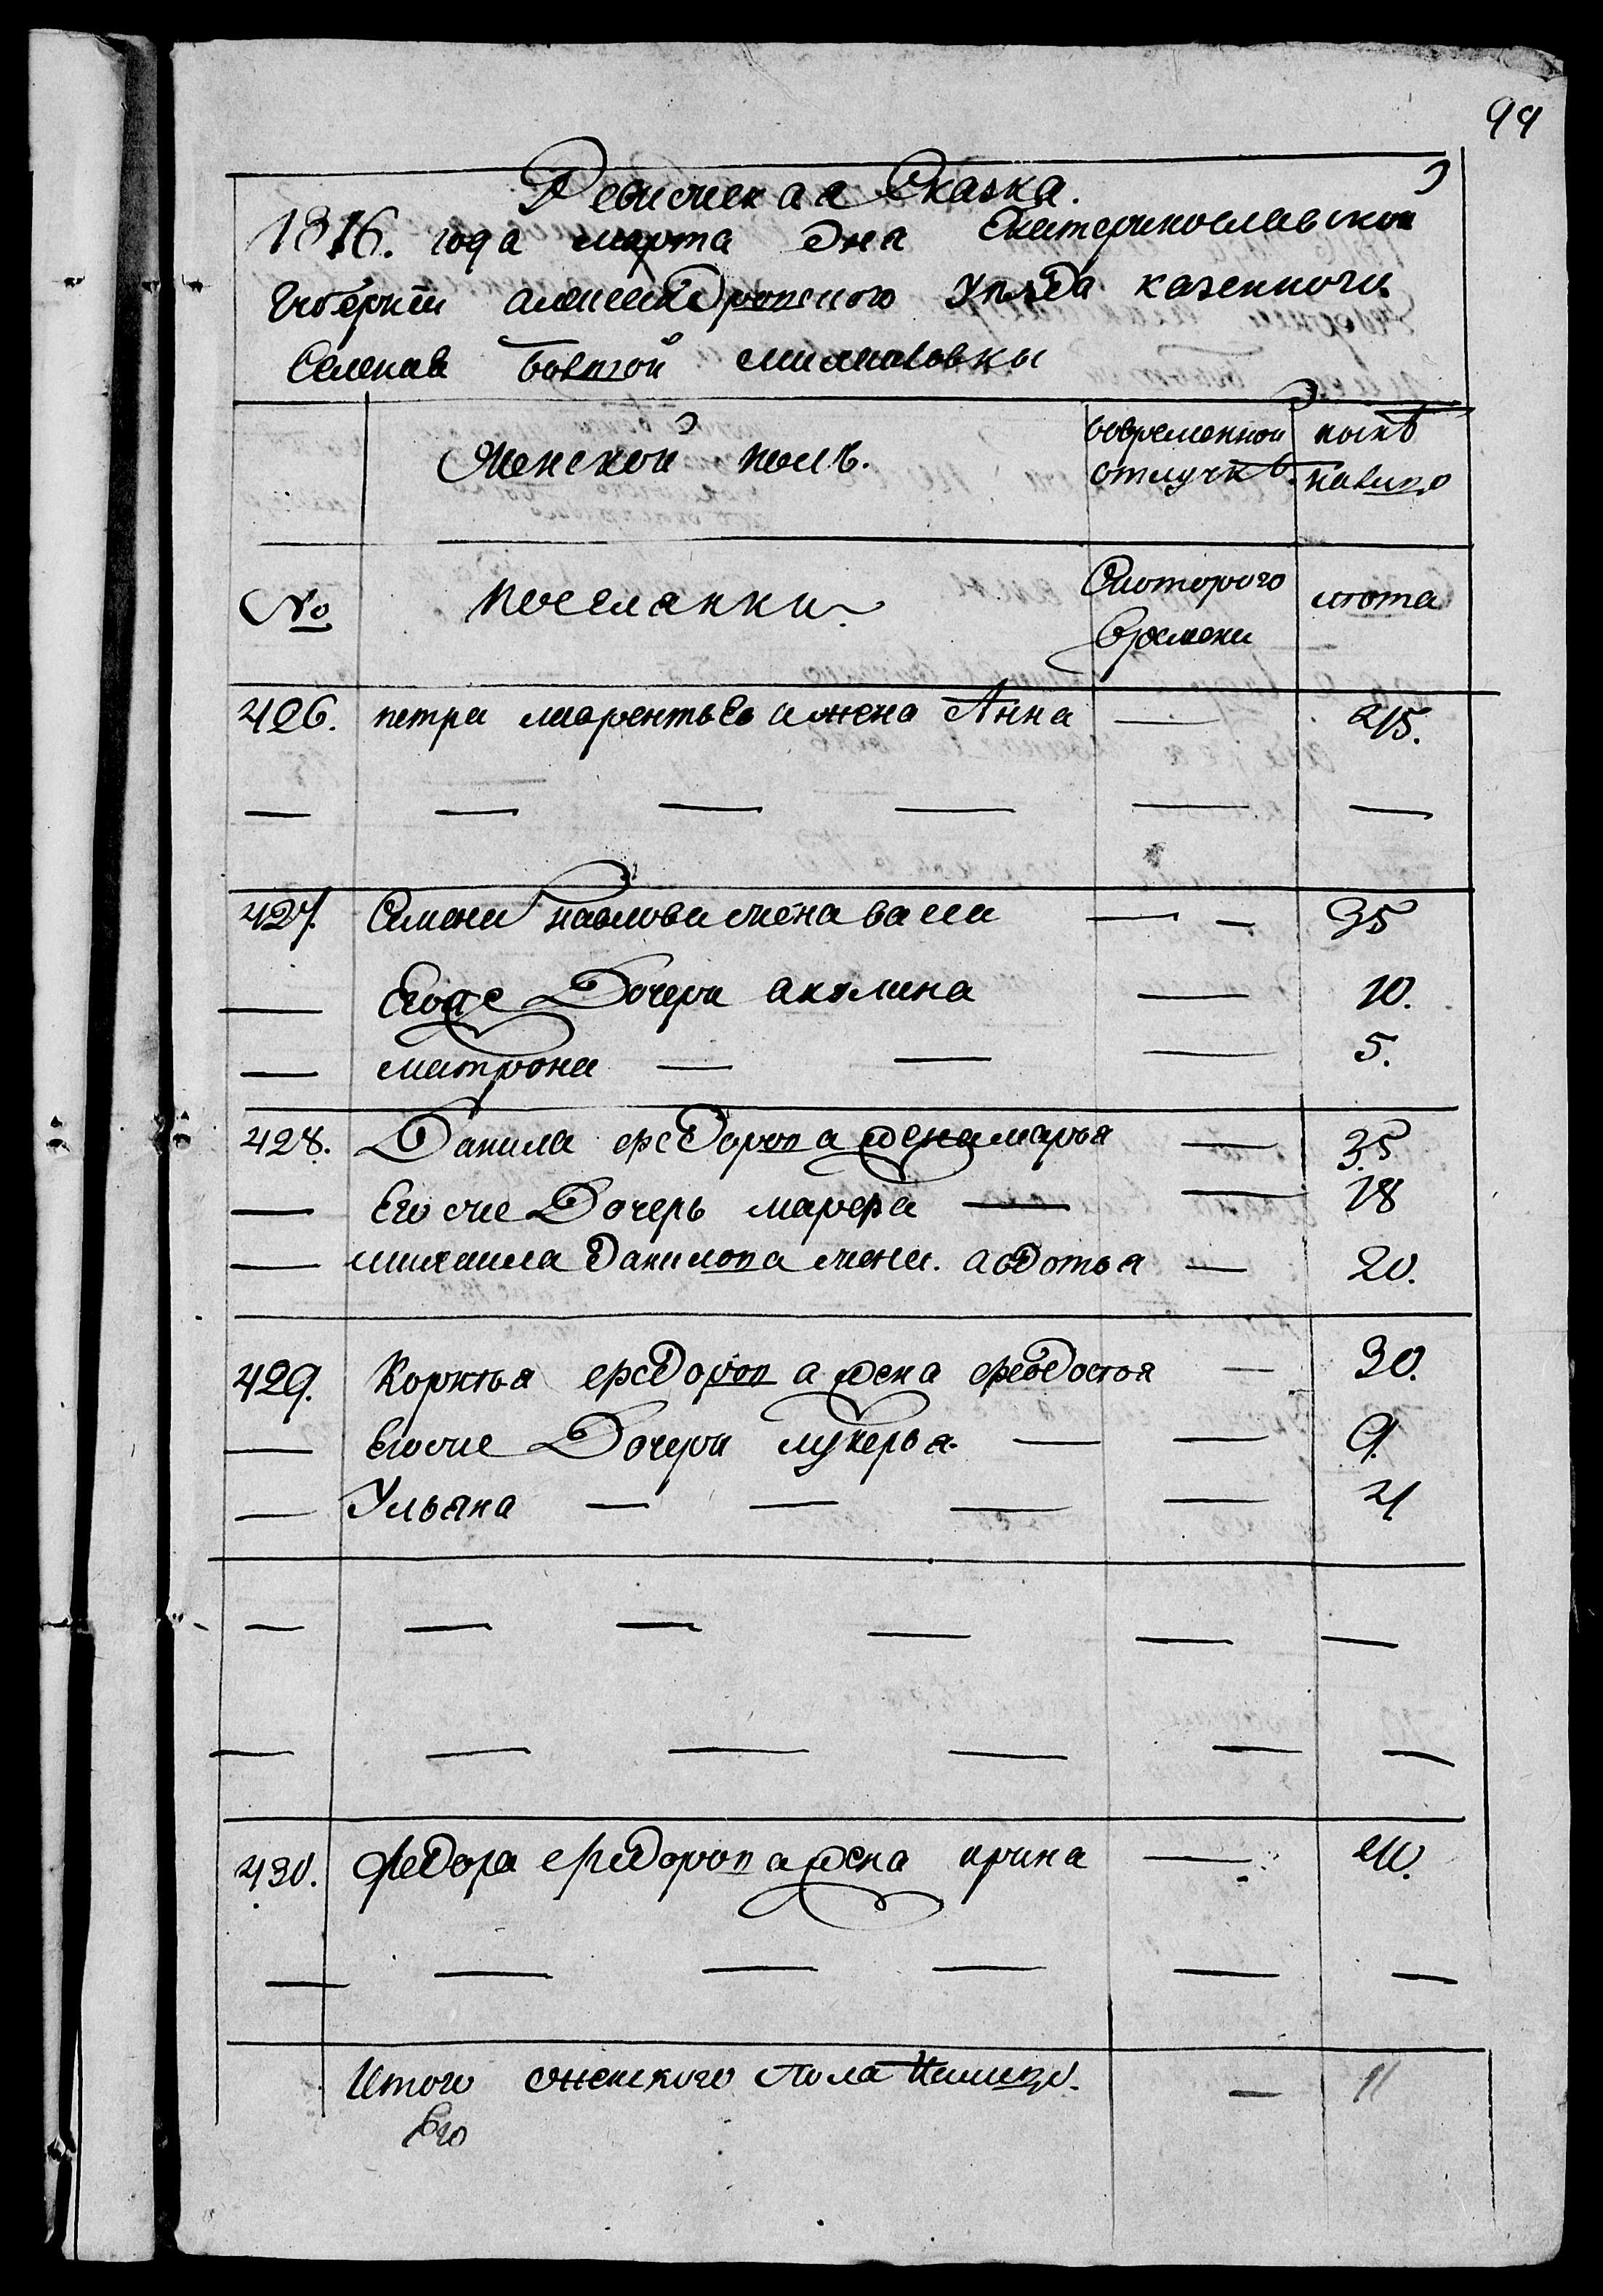 99
Ревижская Сказка.
1816. года марта дня Екатеринославской
Губернии александровского уезда казенного
Селения большой михайловки
Женской полъ.
вовременной отлучкѣ.
нынѣ налицо
№ поселянки
Скоторого времени
лѣта
426. петра лаврентьева жена Анна — 45.
— — — — — —
427. Семена павлова жена васса — — 35
— Егоже Дочери акулина — 10.
— матрона — — — 5.
428. Данила федорова жена марья — 35
— Его же Дочерь марфа — — 18
— михаила данилова жена авдотья — 20.
429. Корнья федорова жена феодостоя — 30.
— Егоже Дочери лукерья — — 9.
— Ульяна — — — — 4
— — — — — —
— — — — — —
430. федора федорова жена ирина — 40.
— — — — — —
Итого женского пола налицо. — 11